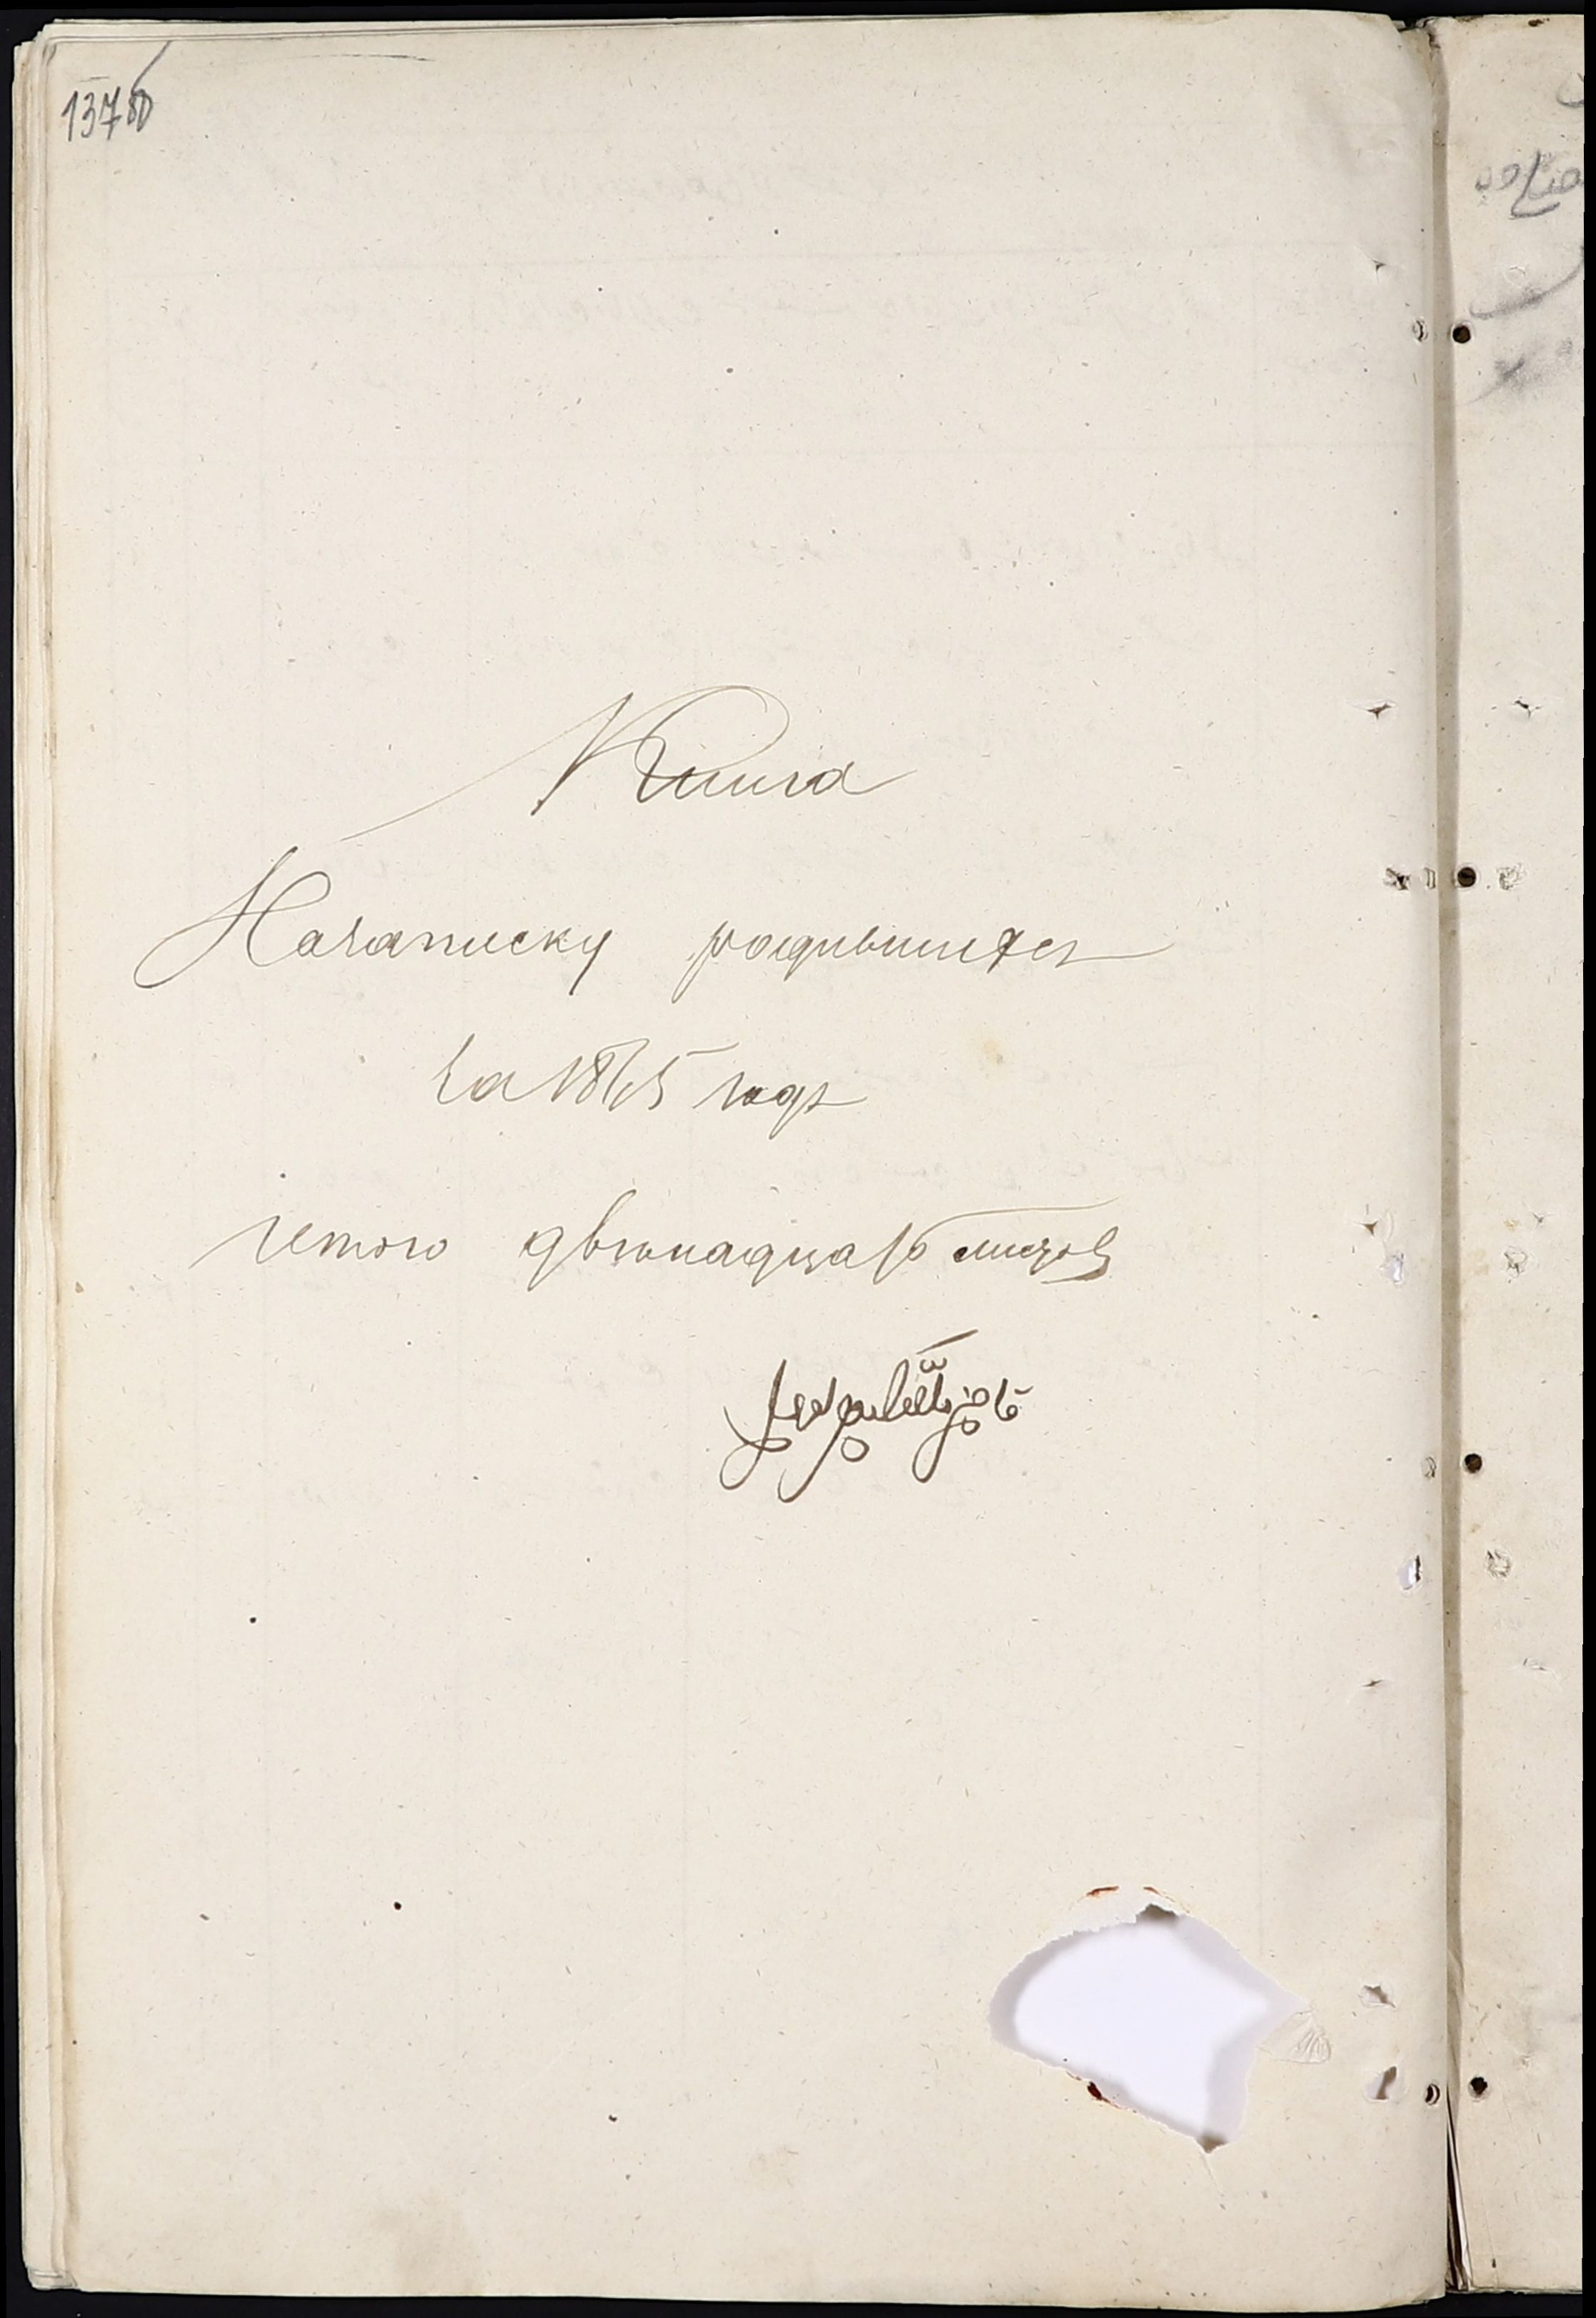 137об
Книга
Назаписку родившихся
за 1865 годъ
итого двенадцать листов
قاضی